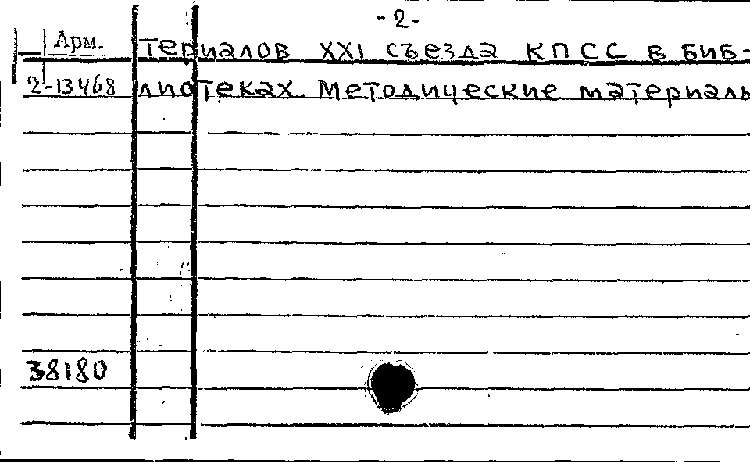 -2-
Арм. териалов XXI съезда КПСС в биб-
2-13468 лиотеках. Методические материалы
38180